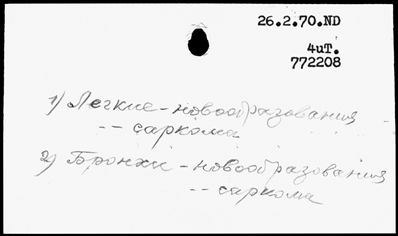 26.2.70.ND
4иТ.
772208
1) Легкие - новообразования
-- саркома
2) Бронхи - новообразования
-- саркома